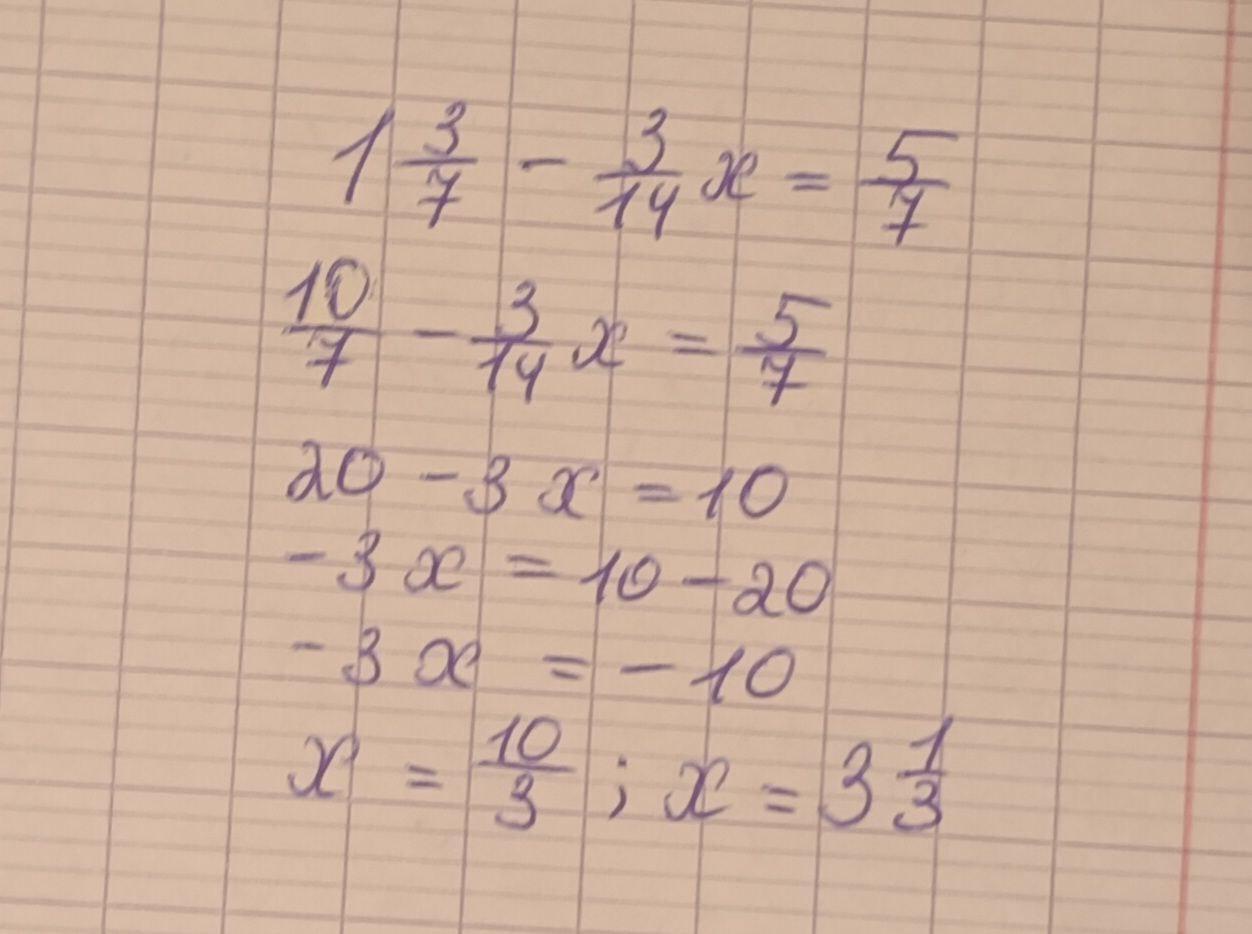 1 3/7 - 3/14 x = 5/7
10/7 - 3/14 x = 5/7
20 - 3x = 10
-3x = 10 - 20
-3x = -10
x = 10/3 ; x = 3 1/3